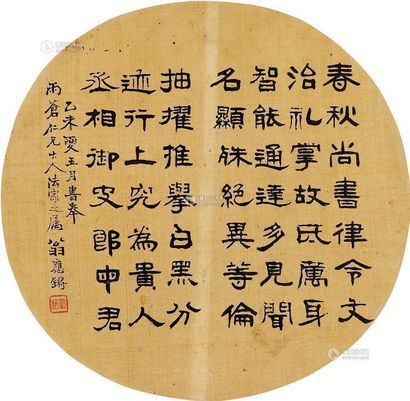 春秋尚書律令文
治礼掌故氐厲身
智能通達多見聞
名顯殊絕異等倫
抽擢推舉白黑分
迹行上究為貴人
丞相御史郎中君
乙未夏五月書奉
雨蒼仁兄大人法家之屬
翁